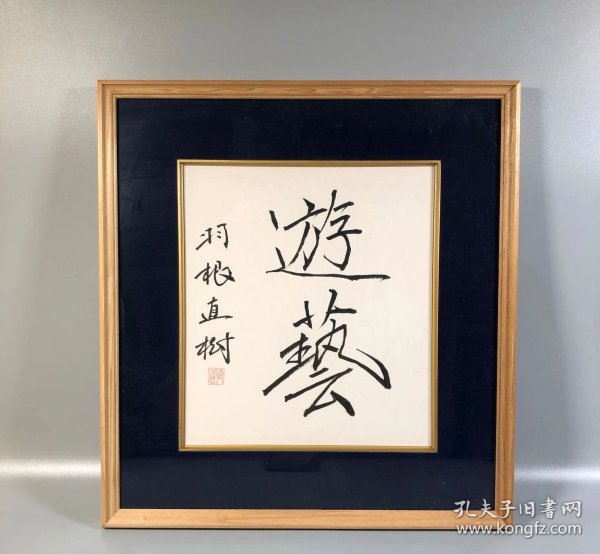 遊藝
羽根直樹
孔夫子旧书网
www.kongfz.com